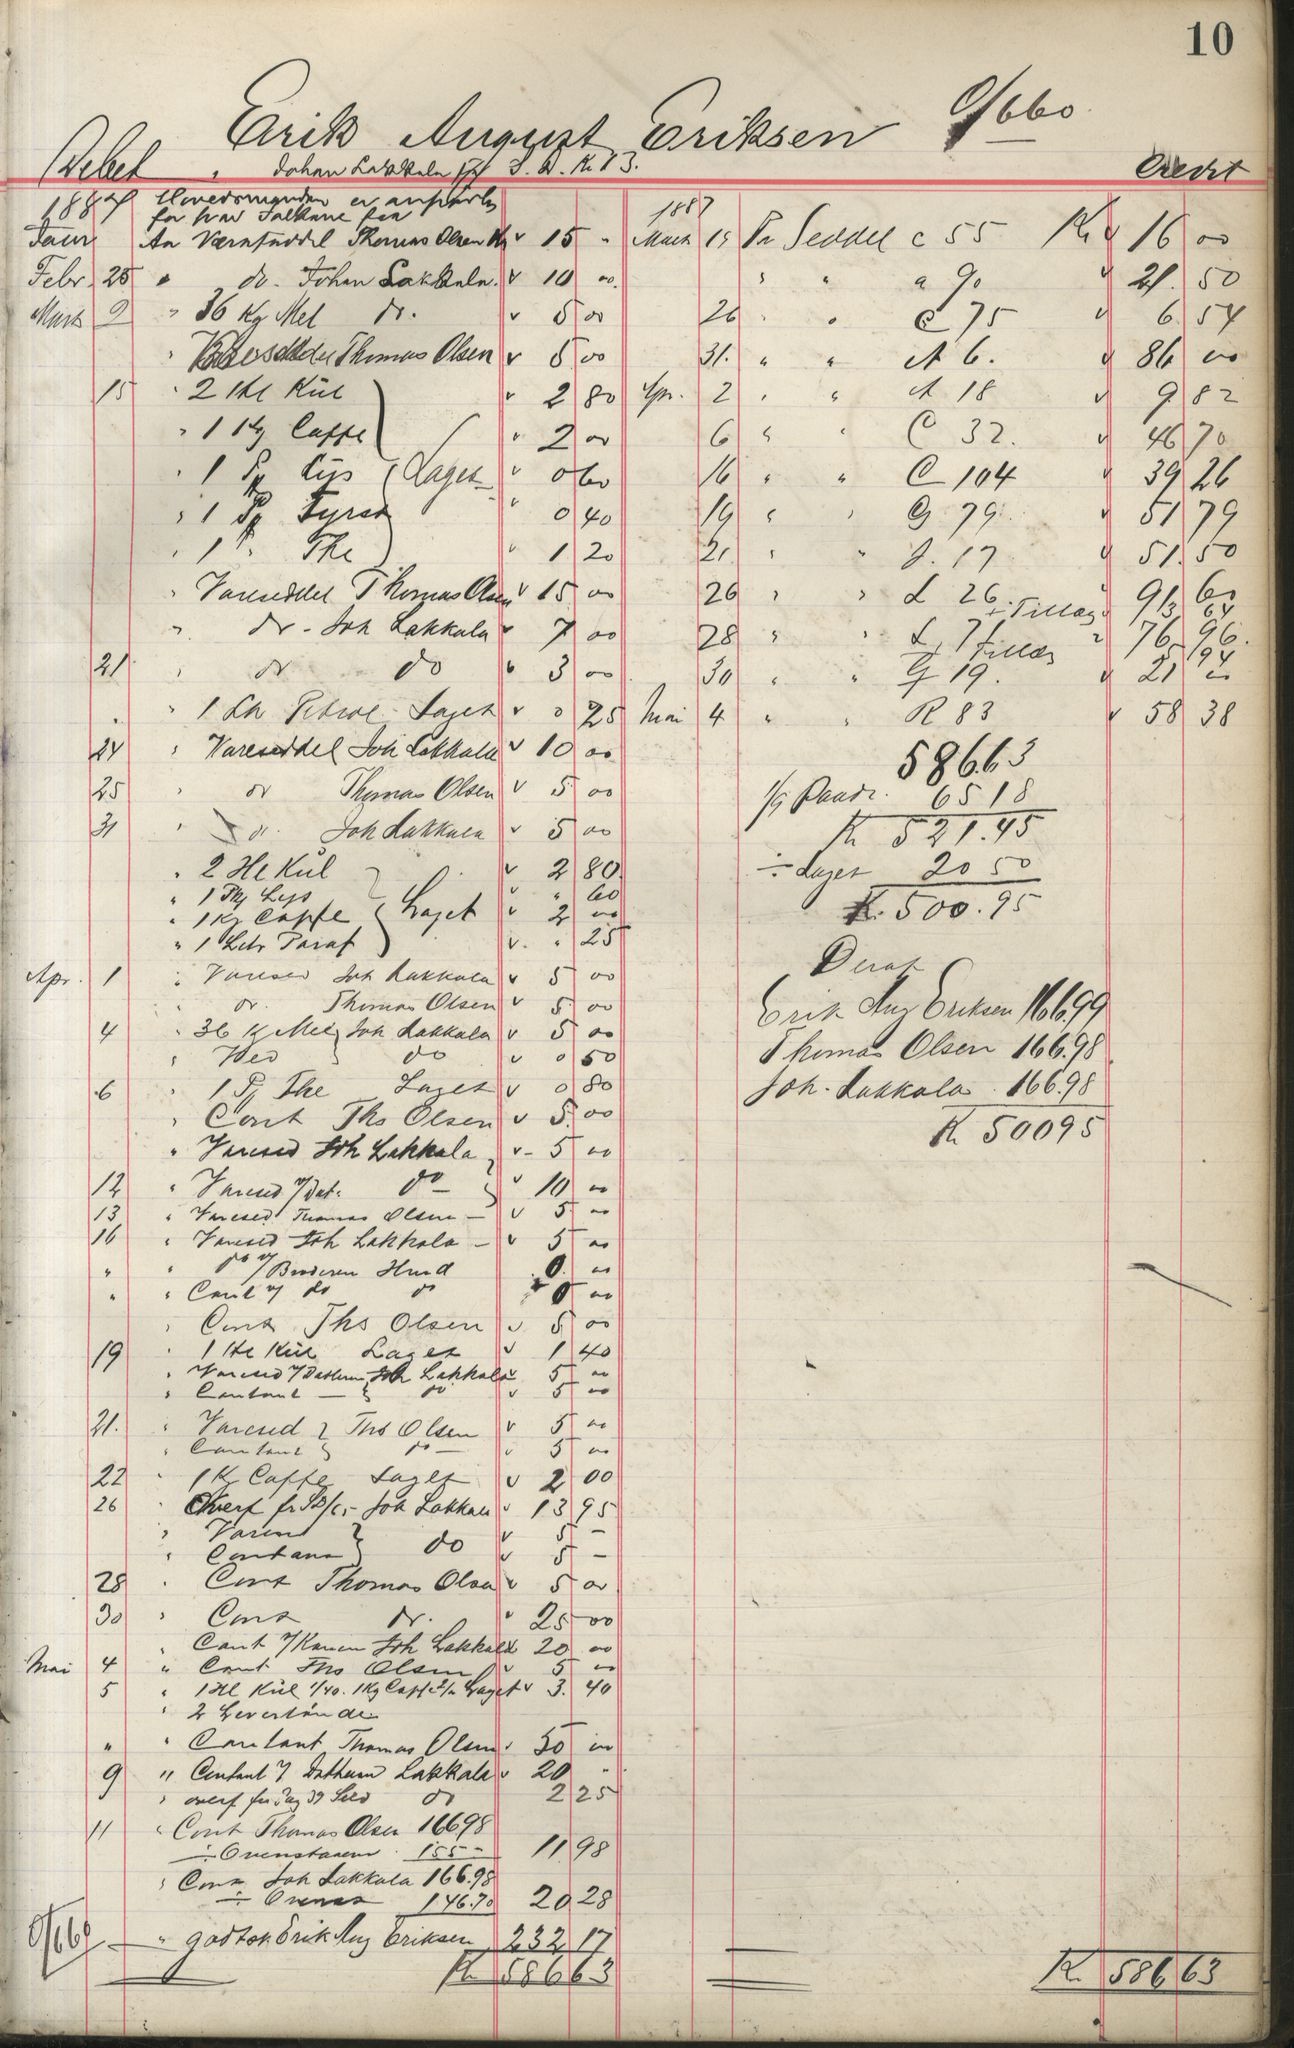 10
Erik August Eriksen O/660
Debet Johan Lakkala Credit
1887 Hovedsmanden er ansvarlig
for hvad Folkene faa
Janr An Vareseddel Thomas Olsen Kr 15 "
Febr. 25 " do. Johan Lakkala 10 00
Marts 2 " 36 Kg Mel do. 5 00
" Vareseddel Thomas Olsen 5 00
15 " 2 Hl Kul 2 80
" 1 Kg Caffe 2 00
" 1 Pk Lys Laget 0 60
" 1 Pk Fyrst 0 40
" 1 " The 1 20
" Vareseddel Thomas Olsen 15 00
" do - Joh Lakkala 7 00
21 " do do 3 00
" " 1 Ltr Petrol Laget 0 25
24 " Vareseddel Joh Lakkala 10 00
25 " do Thomas Olsen 5 00
31 " do. Joh Lakkala 5 00
" 2 Hl Kul 2 80
" 1 Pk Lys " 60
" 1 Kg Caffe Laget 2 00
" 1 Litr Paraf " 25
Apr. 1 " Varesed Joh Lakkala 5 00
" do. Thomas Olsen 5 00
4 " 36 Kg Mel Joh Lakkala 5 00
" Ved do 0 50
6 " 1 Pk The Laget 0 80
" Cont Ths Olsen 5 00
" Varesed Joh Lakkala 5 00
12 " Varesed do 10 00
13 " Varesed Thomas Olsen 5 00
16 " Varesed Joh Lakkala 5 00
" " do 0 00
" " Cont do 0 00
" Cont Ths Olsen 5 00
19 " 1 Hl Kul Laget 1 40
" Varesed Joh Lakkala 5 00
" Contant do 5 00
21. " Varesed Ths Olsen 5 00
" Contant do 5 00
22 " 1 Kg Caffe Laget 2 00
26 " Overf fr Joh Lakkala 13 95
" Varesed 5 -
" Contant do 5 -
28 " Cont Thomas Olsen 5 00
30 " Cont do. 25 00
" Cont Joh Lakkala 20 00
Mai 4 " Cont Ths Olsen 5 00
5 " 1 Hl Kul 1/40. 1 Kg Caffe 2/" Laget 3. 40
" 2
" " Contant Thomas Olsen 50 00
9 " Contant Lakkala 20 "
" overf fr Pag 39 do 2 25
11 " Cont Thomas Olsen 166 98
÷ Ovenstaaende 155 - 11 98
" Cont Joh Lakkala 166.98
÷ 146.70 20 28
O/660 " godtsk. Erik Aug Eriksen 232 17
Kr 586 63
1887
Marts 15 Pr Seddel C 55 Kr 16 00
" " a 90 21. 50
26 " " C 75 6. 54
31. " " A 6. 86 00
Apr. 2 " " A 18 9 82
6 " " C 32. 46 70
16 " " C 104 39 26
19 " " G 79. 51 79
21. " " J. 17 51. 50
26 " " L 26. 91 60
+ Tillæg 3 64
28 " " L 7 76 96.
+ Tillæg
30 " " G 19. 21 00
Mai 4 " " R 83 58 38
586.63
65 18
Kr 521.45
÷ Laget 20 50
Kr. 500.95
Deraf
Erik Aug Eriksen 166.99
Thomas Olsen 166.98
Joh. Lakkala 166.98
Kr 500 95
Kr. 586 63